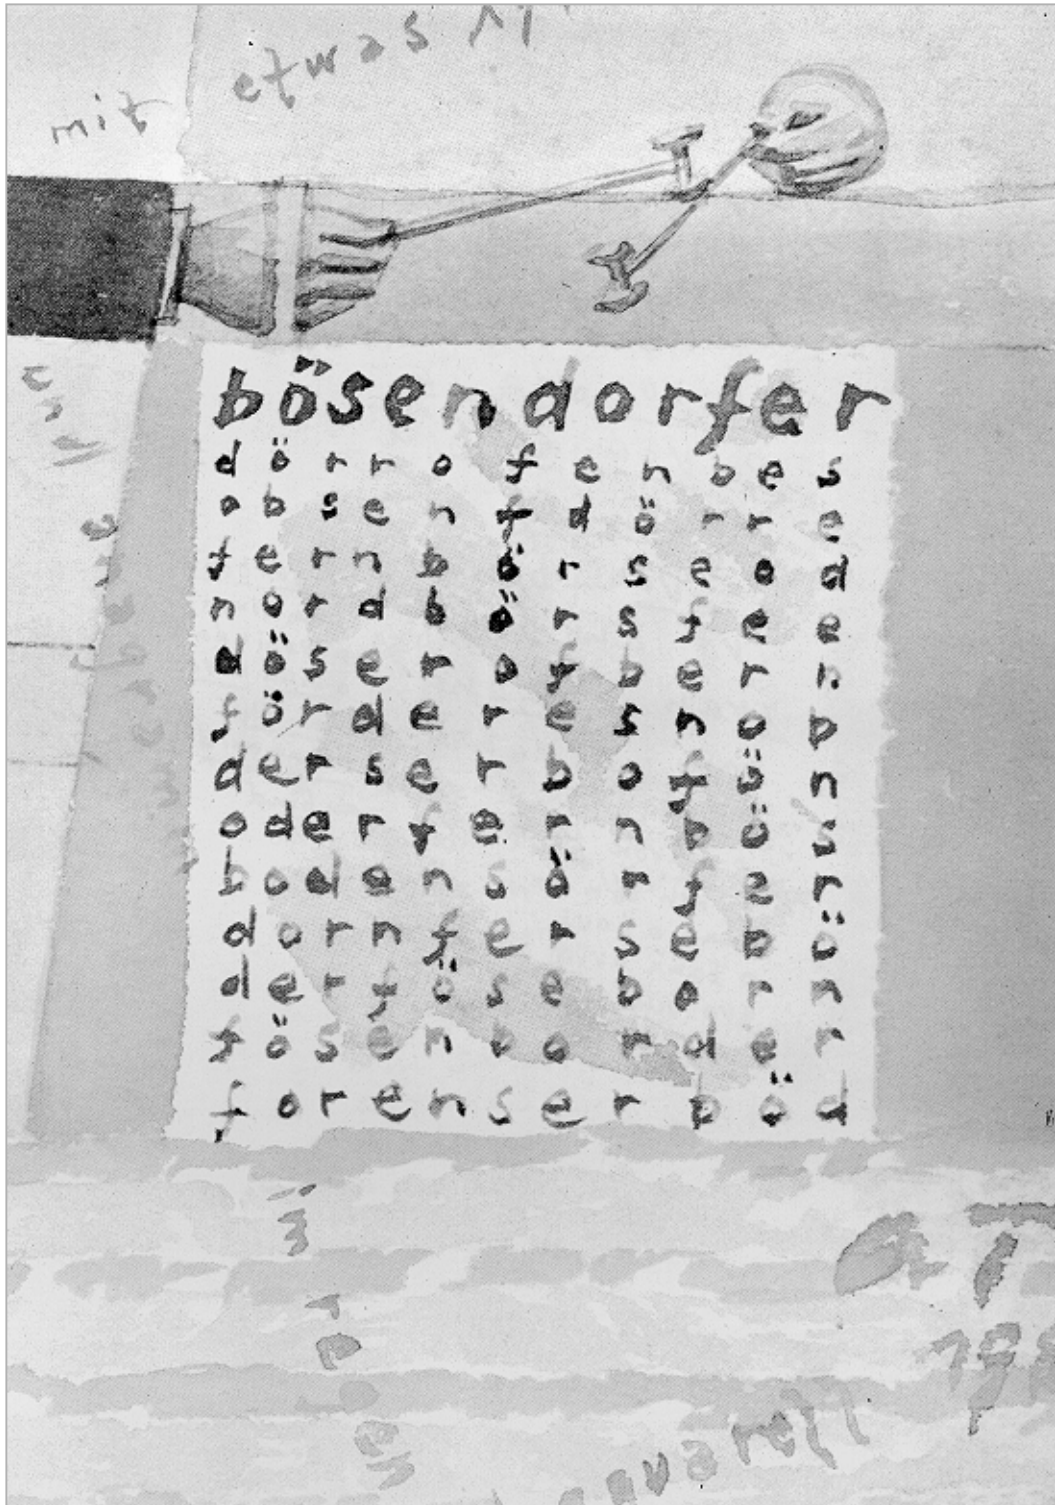 mit etwas
bösendorfer
dörrofenbes
obsenfdörre
fernbörseod
nordbörsfee
döserofbern
förderesnob
derserbofön
oderfernbös
bodensörfer
dornfersebö
derföseborn
fösenborder
forenserböd